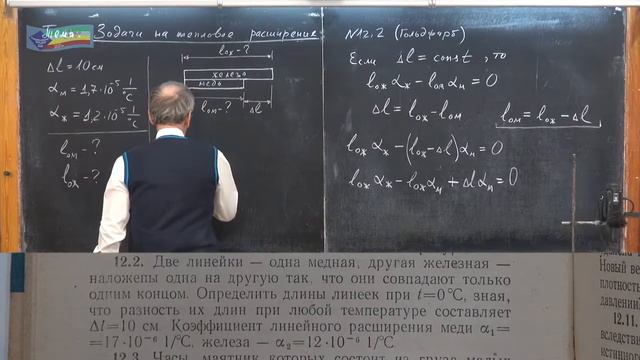 Тема: Задачи на тепловое расширение
Δl = 10 см
α_м = 1,7·10⁻⁵ 1/°C
α_ж = 1,2·10⁻⁵ 1/°C
l_ом - ?
l_ож - ?
l_ож - ?
железо
медь
l_ом - ?
Δl
N12.2 (Гольдфарб)
Если Δl = const, то
l_ож α_ж - l_ом α_м = 0
Δl = l_ож - l_ом
l_ом = l_ож - Δl
l_ож α_ж - (l_ож - Δl) α_м = 0
l_ож α_ж - l_ож α_м + Δl α_м = 0
12.2. Две линейки — одна медная, другая железная —
наложены одна на другую так, что они совпадают только
одним концом. Определить длины линеек при t=0°C, зная,
что разность их длин при любой температуре составляет
Δl=10 см. Коэффициент линейного расширения меди α₁=
=17·10⁻⁶ 1/°C, железа — α₂=12·10⁻⁶ 1/°C
12.3. Часы, маятник которых состоит из груза
Новый ве
плотность
давлении
12.11.
вследств